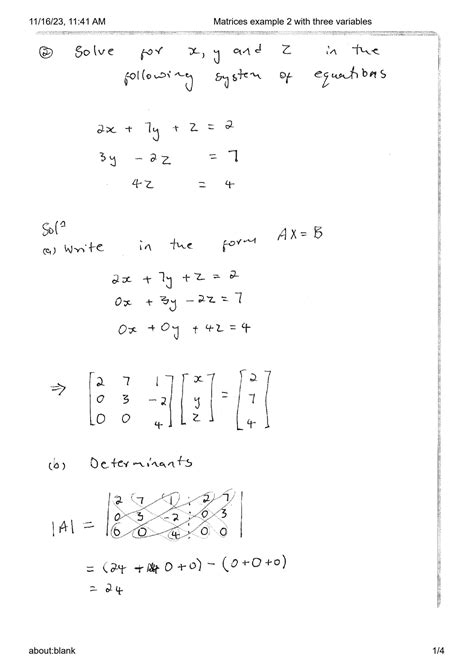 11/16/23, 11:41 AM Matrices example 2 with three variables
② Solve for x, y and z in the
following system of equations
2x + 7y + z = 2
3y - 2z = 7
4z = 4
Solⁿ
(a) Write in the form AX = B
2x + 7y + z = 2
0x + 3y - 2z = 7
0x + 0y + 4z = 4
⇒ [2 7 1] [x] = [2]
[0 3 -2] [y] [7]
[0 0 4] [z] [4]
(b) Determinants
|2 7 1 : 2 7|
|A| = |0 3 -2 : 0 3|
|0 0 4 : 0 0|
= (24 + 0 + 0) - (0+0+0)
= 24
about:blank 1/4